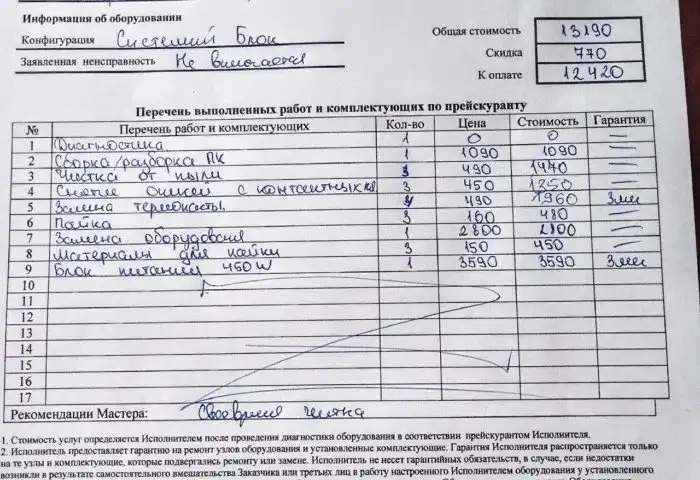 Информация об оборудовании
Конфигурация Системный Блок
Заявленная неисправность Не включается
Общая стоимость 13190
Скидка 770
К оплате 12420
Перечень выполненных работ и комплектующих по прейскуранту
№ Перечень работ и комплектующих Кол-во Цена Стоимость Гарантия
1 Диагностика 1 0 0 —
2 Сборка/разборка ПК 1 1090 1090 —
3 Чистка от пыли 3 490 1470 —
4 Снятие окисей с контактных 3 450 1350 —
5 Замена термопасты 4 490 1960 3 мес
6 Пайка 3 160 480 —
7 Замена оборудования 1 2800 2800 —
8 Материалы для пайки 3 150 450 —
9 Блок питания 450W 1 3590 3590 3 мес
10
11
12
13
14
15
16
17
Рекомендации Мастера: чистка
1. Стоимость услуг определяется Исполнителем после проведения диагностики оборудования в соответствии прейскурантом Исполнителя.
2. Исполнитель предоставляет гарантию на ремонт узлов оборудования и установленные комплектующие. Гарантия Исполнителя распространяется только
на те узлы и комплектующие, которые подвергались ремонту или замене. Исполнитель не несет гарантийных обязательств, в случае, если недостатки
возникли в результате самостоятельного вмешательства Заказчика или третьих лиц в работу настроенного Исполнителем оборудования у установленного